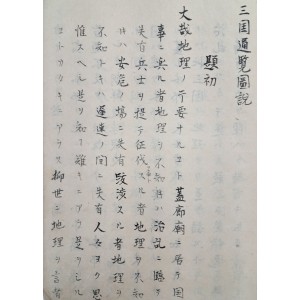 三国通覧図説
題初
大哉地理ノ肝要ナルコト蓋廊廟ニ居テ国
事ニ与ル者地理ヲ不知寸ハ治乱ニ臨テ
失有兵士ヲ提テ征伐スル者地理ヲ不知
寸ハ安危ノ場ニ失有跋渉スル者地理ヲ
不知寸ハ遅速ノ間ニ失有人々ヨク思
惟スヘシ是ヲ知ノ難キニアラス是ヲ
コトノカタキニアラス抑世ニ地理ヲ言者